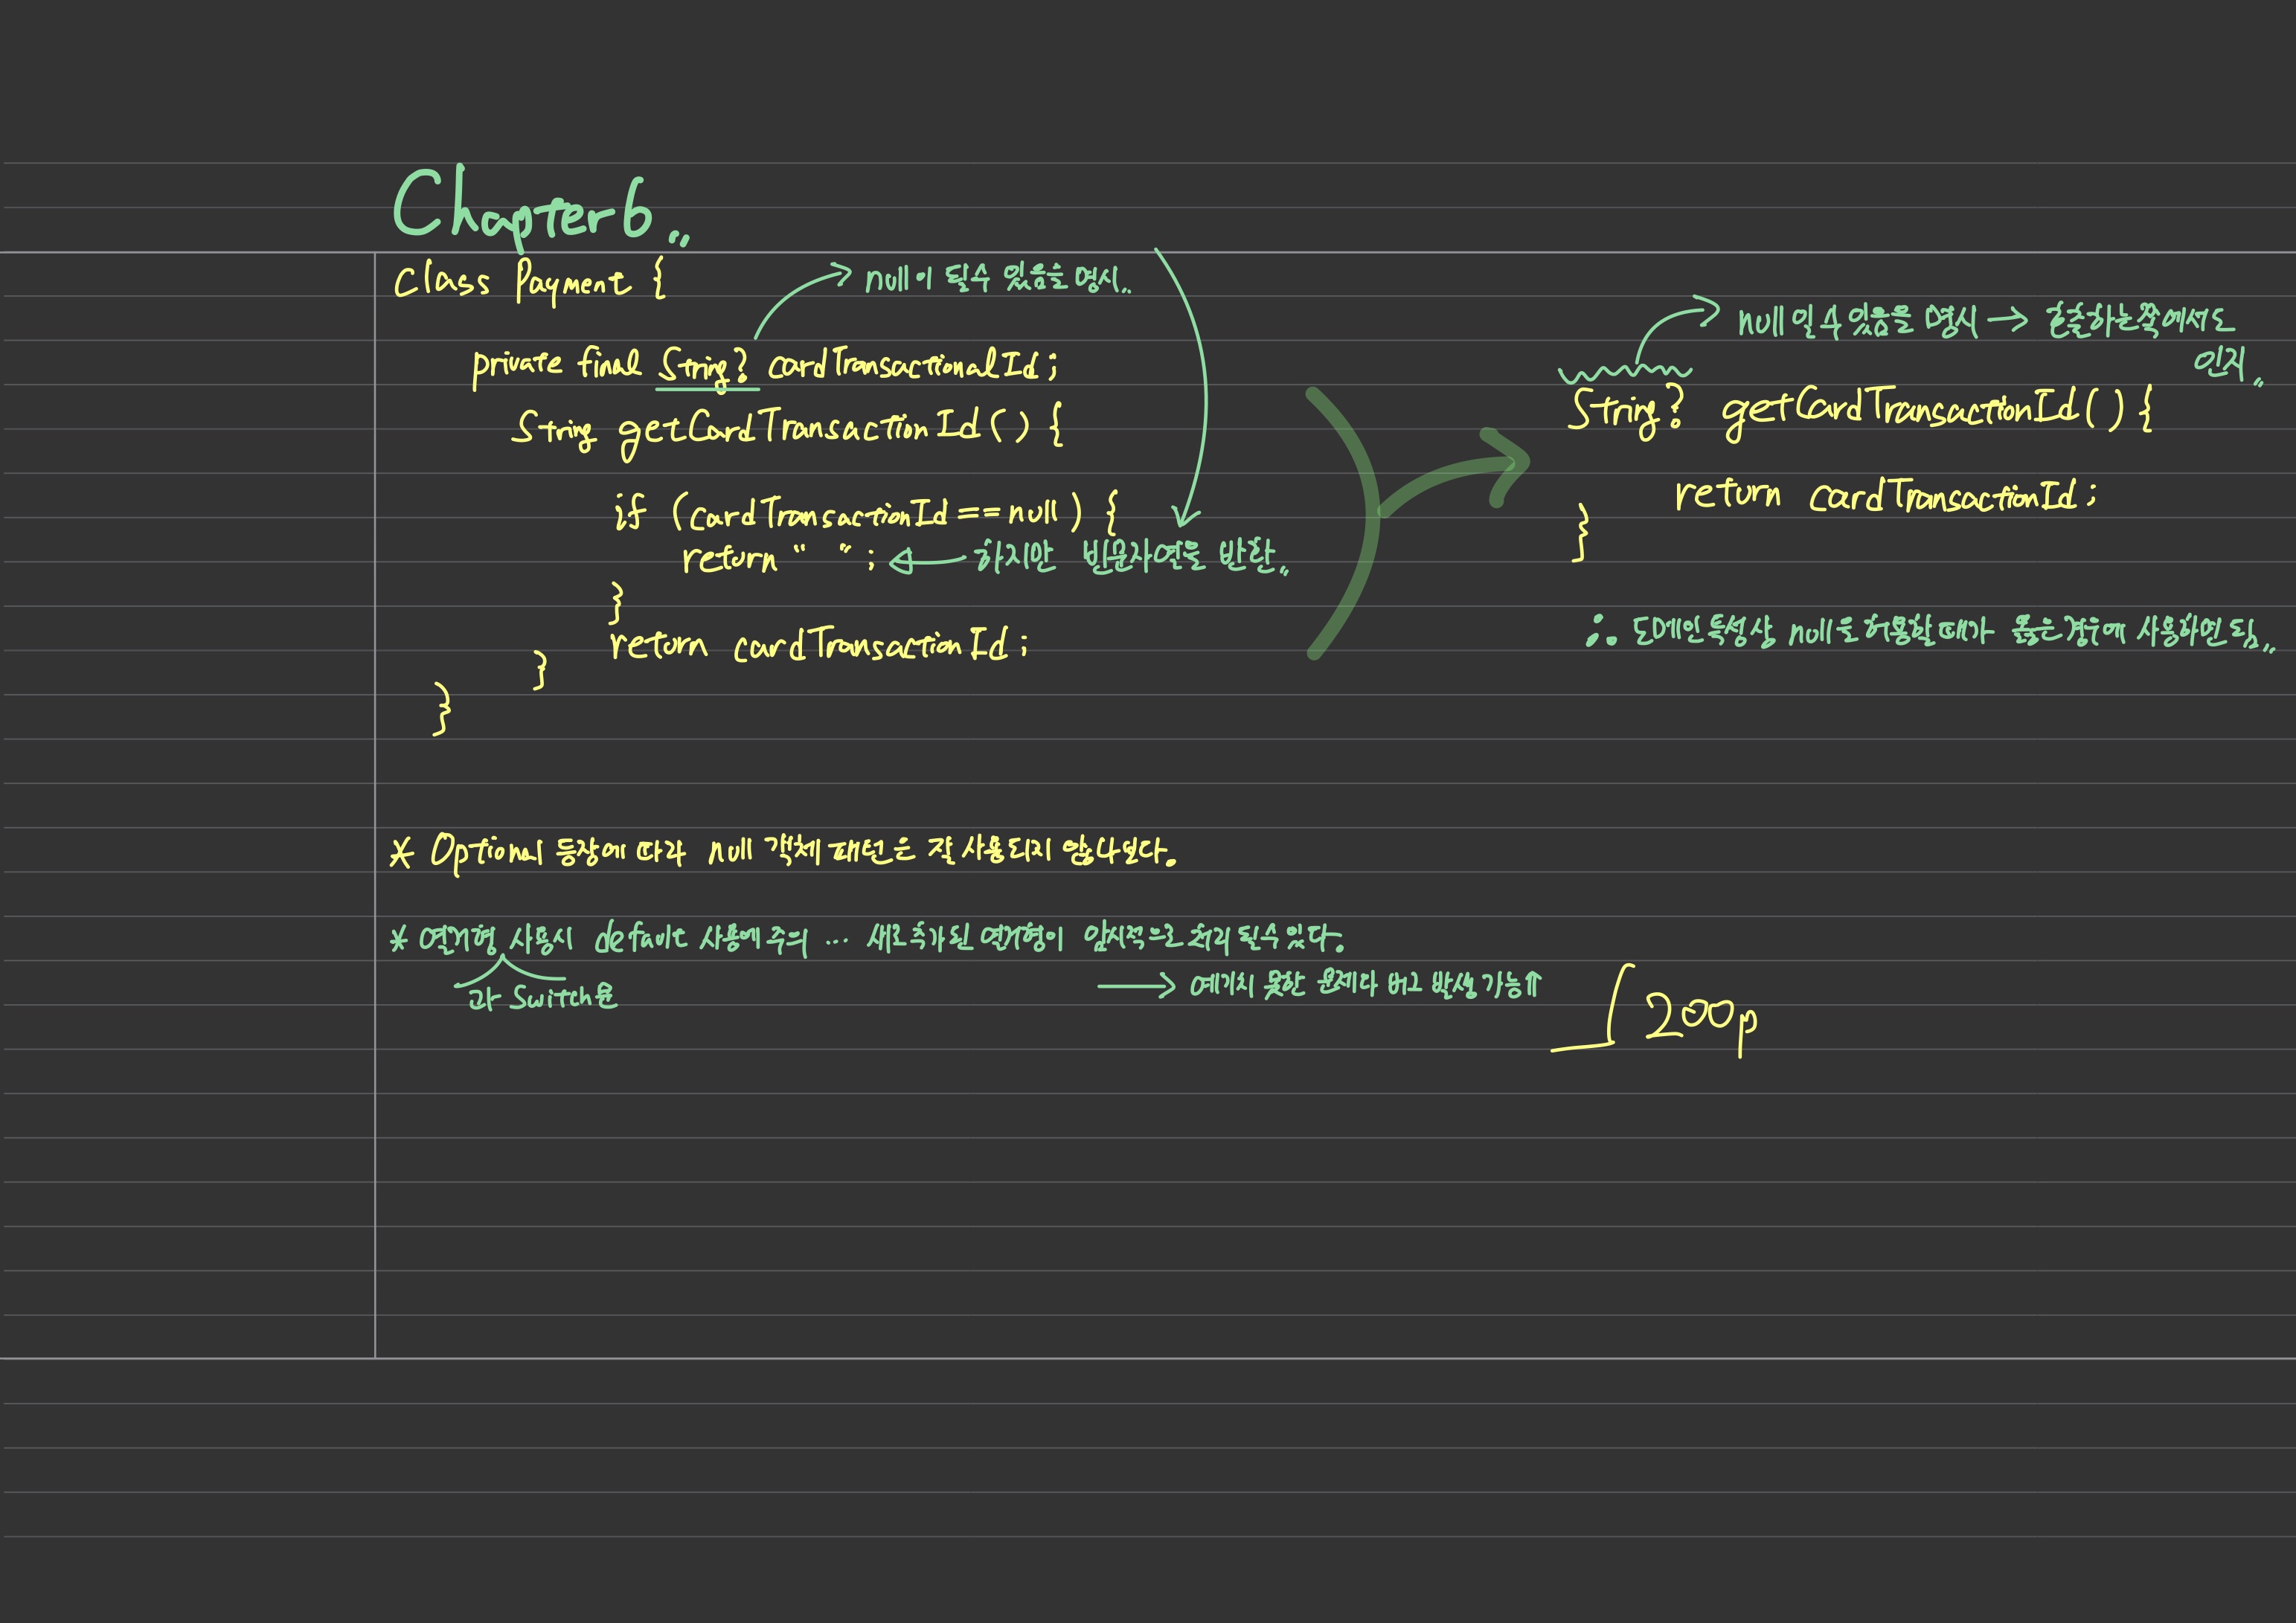 Chapter6..
class Payment {
null이 될수 있음을 명시..
private final String? cardTransactionalId;
String getCardTransactionId() {
if (cardTransactionId == null) {
return " "; ← 하지만 빈문자열을 반환..
}
return cardTransactionId;
}
}
null일수 있음을 명시 → 호출하는쪽에서도
인지..
String? getCardTransactionId() {
return cardTransactionId;
}
∴ 도메인 특성상 null을 허용할 때가 좋은 경우에 사용하면 됨..
* Optional 등장에 따라 null 객체 패턴은 잘 사용되지 않나보다.
* 열거형 사용시 default 사용에 주의 ... 새로 추가된 열거형이 암시적으로 처리 될수 있다.
과 Switch문
→ 예기치 못한 문제나 버그 발생 가능↑
200p